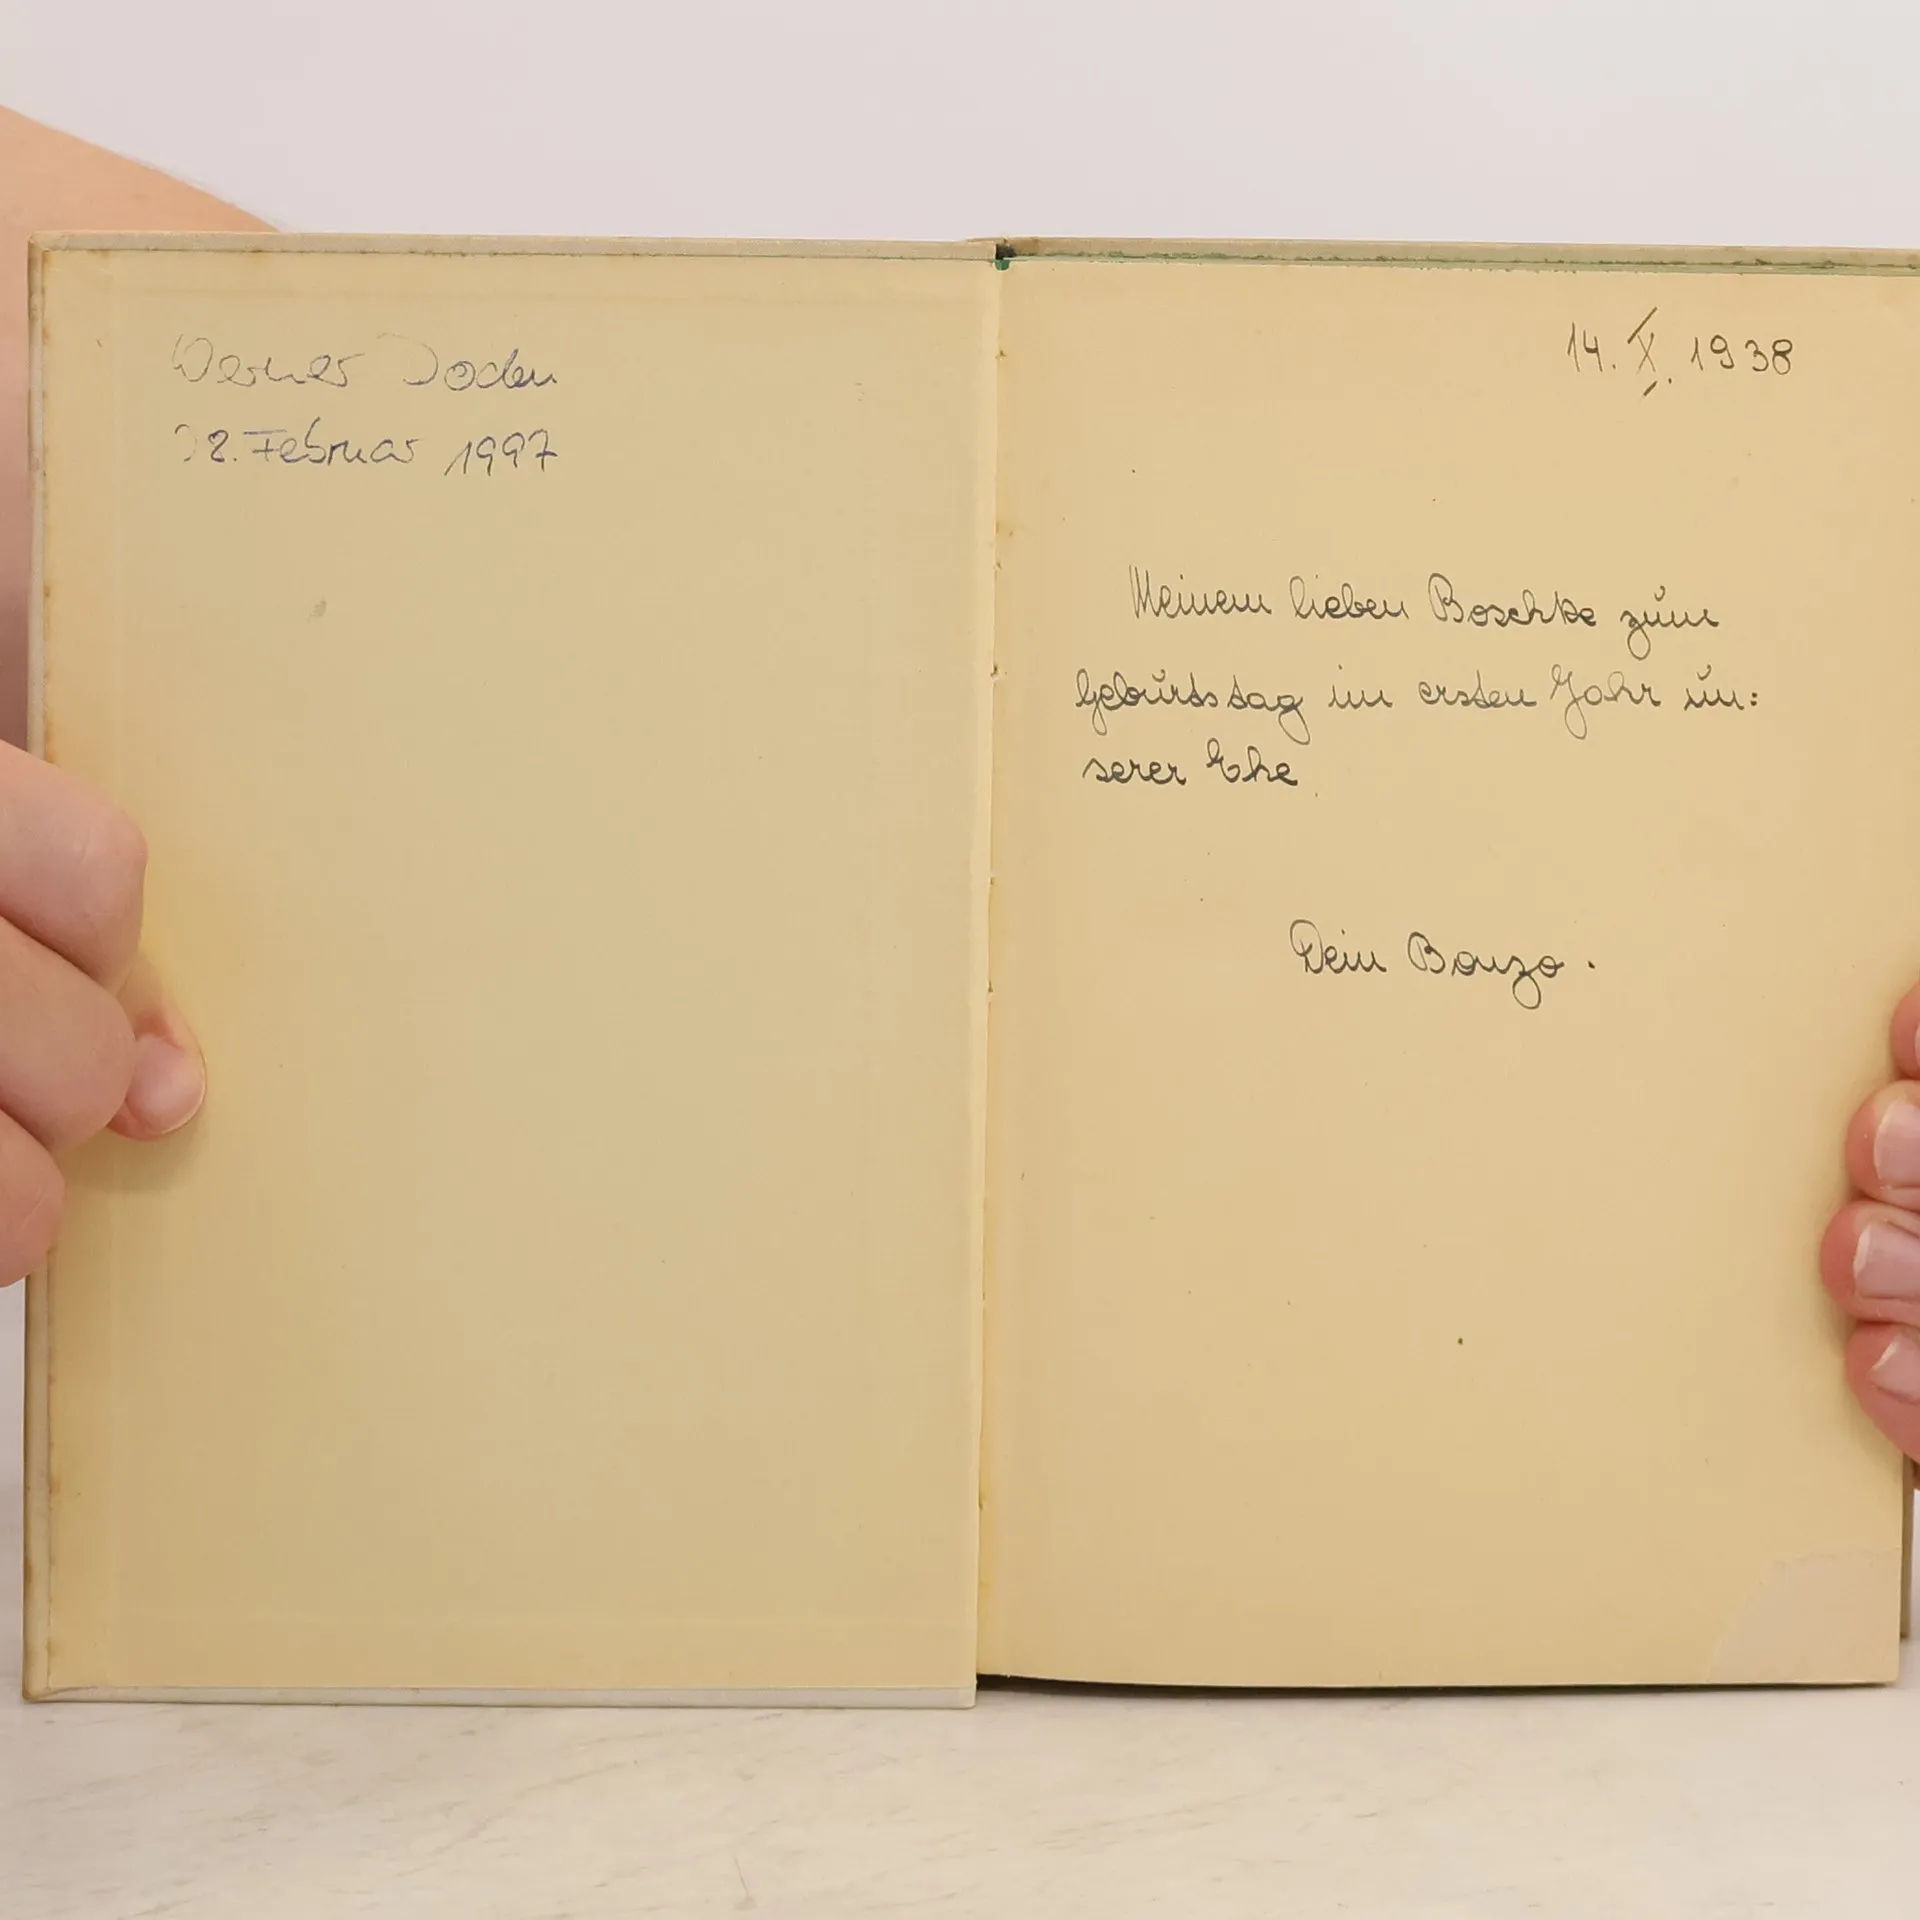 Werner Doden
28. Februar 1997
14. X. 1938
Meinem lieben Boschke zum
Geburtstag im ersten Jahr un:
serer Ehe
Dein Bonzo.